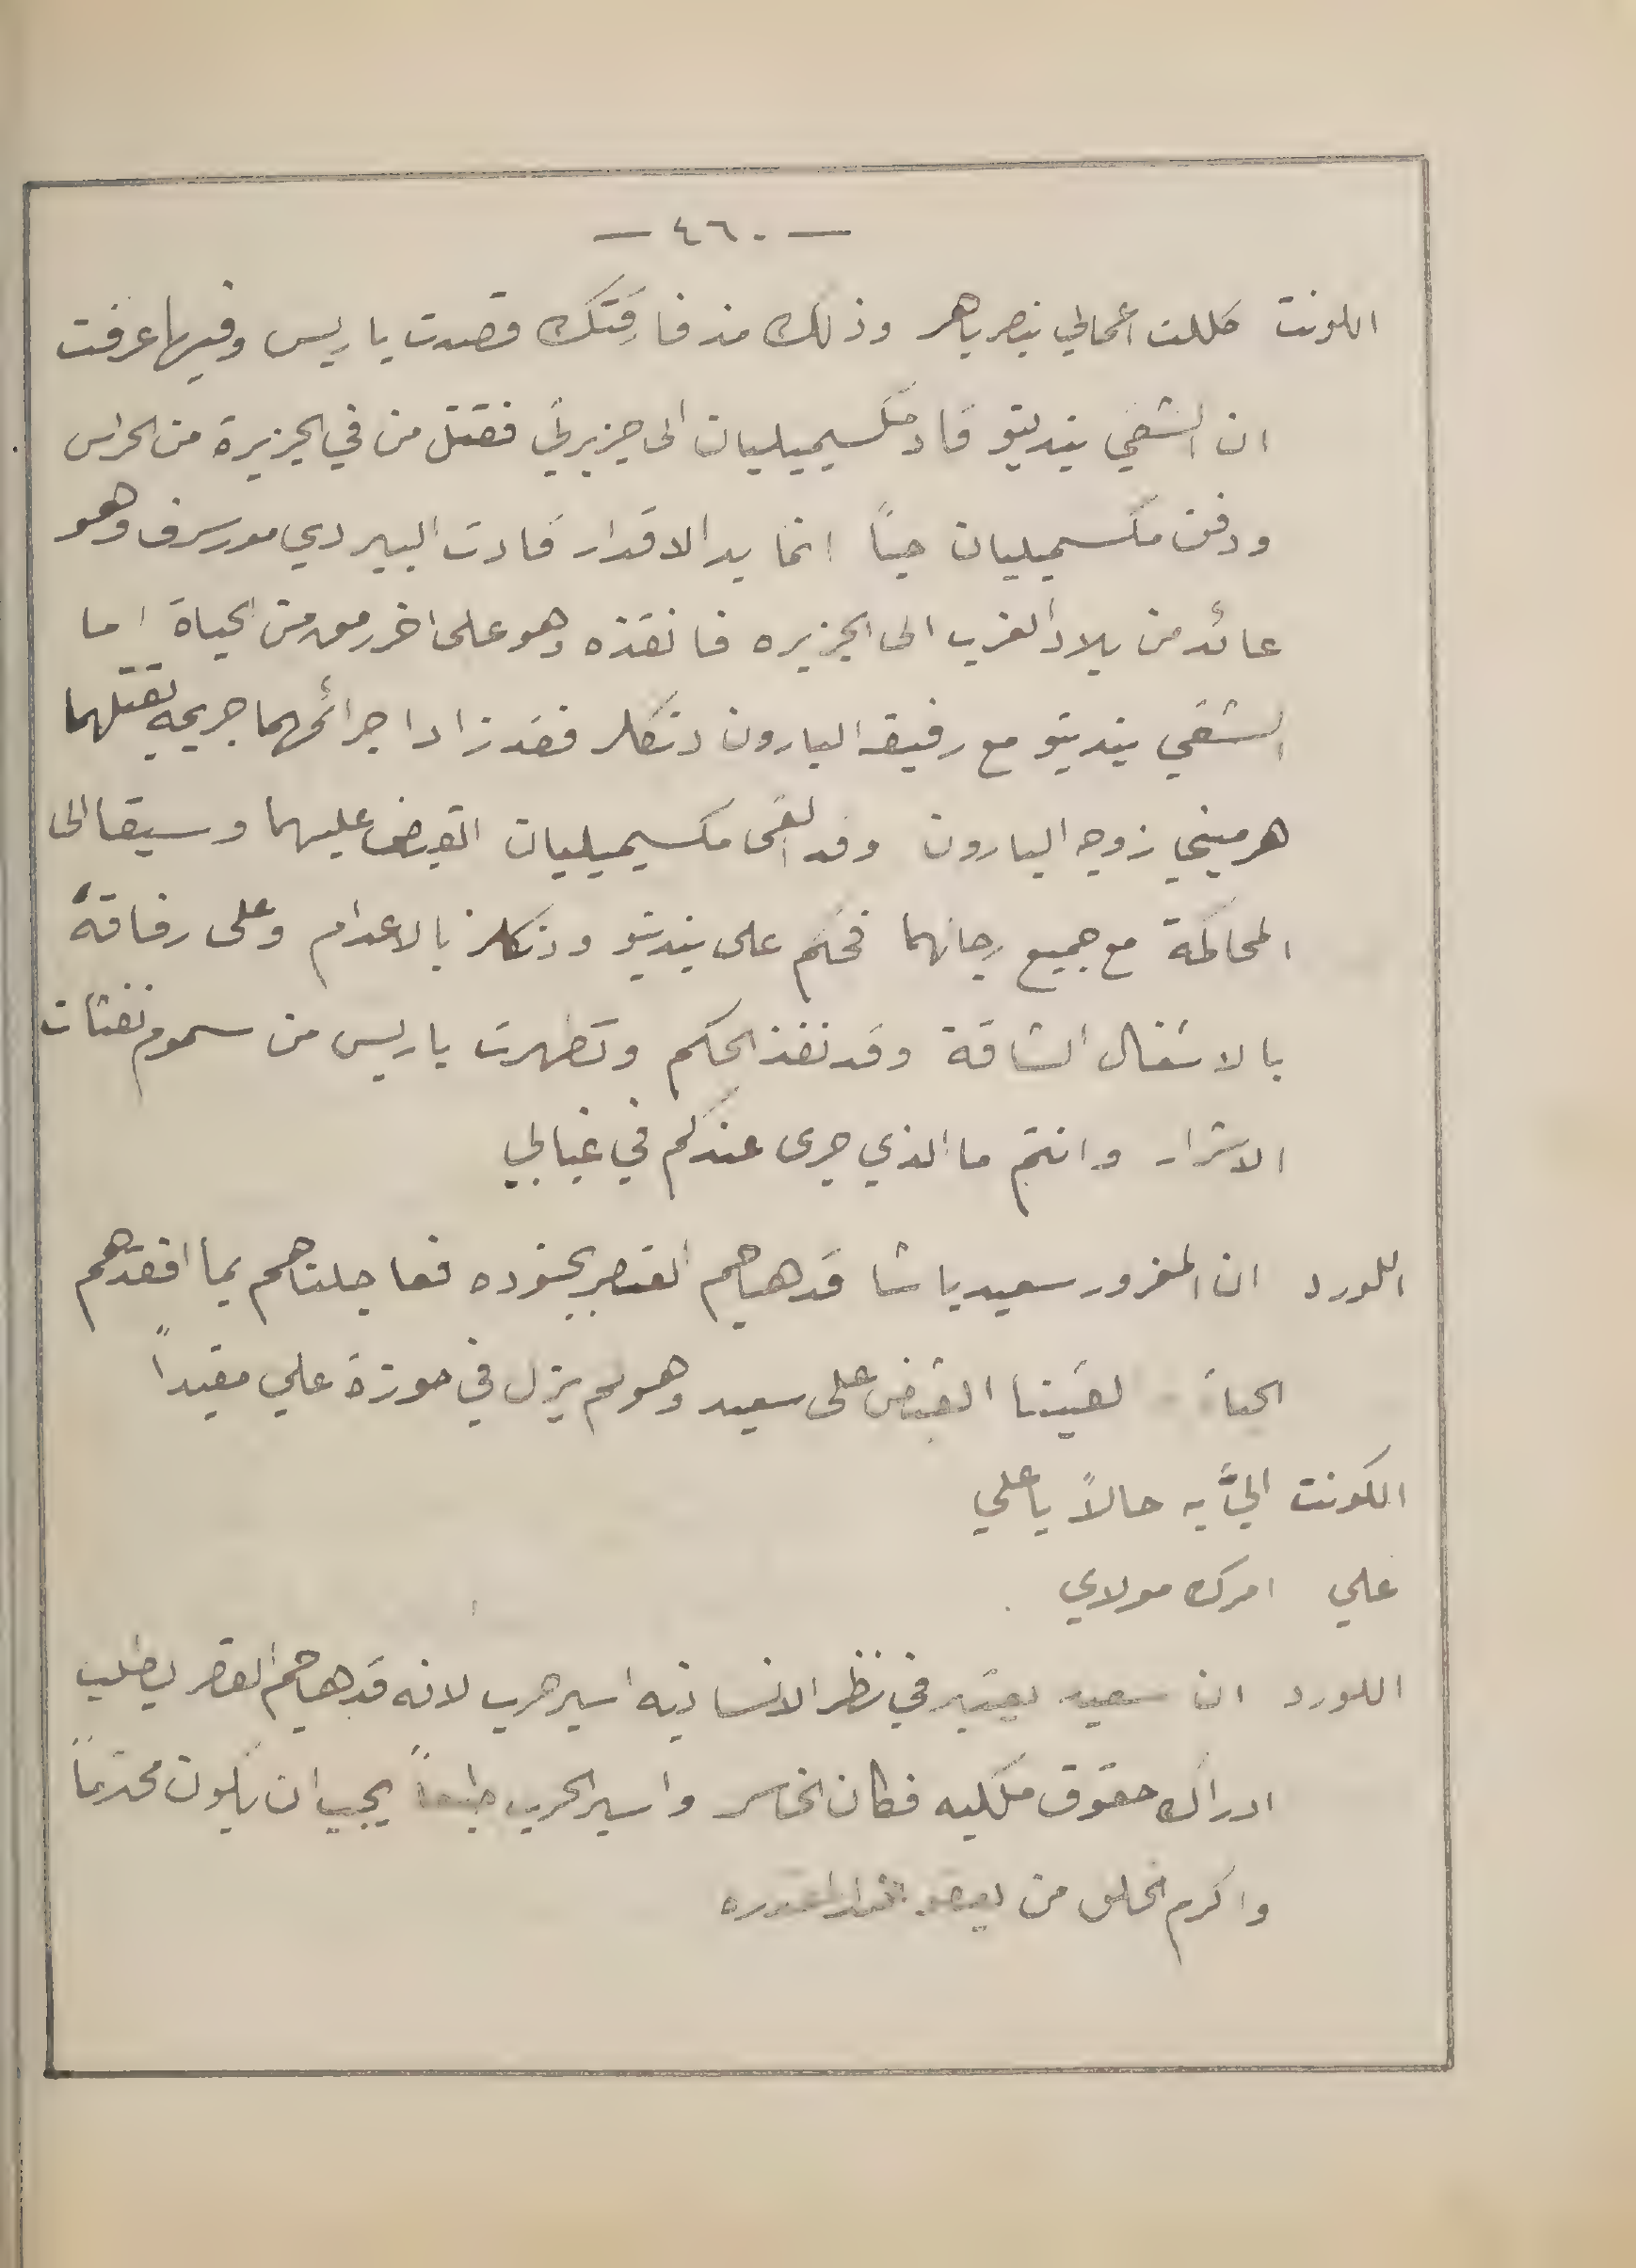 — ٤٦٠ —
الكونت كللت اعمالي بنصر باهر وذلك منذ فارقتك قصدت باريس وفيها عرفت
ان الشقي بنديتو قاد مكسيميليان الى جزيرتي فقتل من في الجزيرة من الحراس
ودفن مكسيميليان حياً انما يد الاقدار قادت البير دي مورسرف وهو
عائد من بلاد الغرب الى الجزيره فانقذه وهو على اخر رمق من الحياة اما
الشقي بنديتو مع رفيقه البارون دنكلر فقد زادا جرائمهما جريمة بقتلهما
هرميني زوجه البارون وقد القى مكسيميليان القبض عليهما وسيقا الى
المحاكمة مع جميع رجالهما فحكم على بنديتو ودنكلر بالاعدام وعلى رفاقه
بالاشغال الشاقة وقد نفذ الحكم وتطهرت باريس من سموم نفثات
الاشرار وانتم ما الذي جرى عندكم في غيابي
اللورد ان المغرور سعيد باشا قد هاجم القصر بجنوده فعاجلناهم بما افقدهم
الحياة لقينا القبض على سعيد وهو لم يزل في حوزة علي مقيداً
الكونت اليَّ به حالاً يا علي
علي امرك مولاي
اللورد ان سعيد يعتبر في نظر الانسانيه اسير حرب لانه قد هاجم القصر يطلب
ادراك حقوق ملكيه فكان الخاسر واسير الحرب طبعاً يجب ان يكون محترماً
واكرم الخلق من يعفو